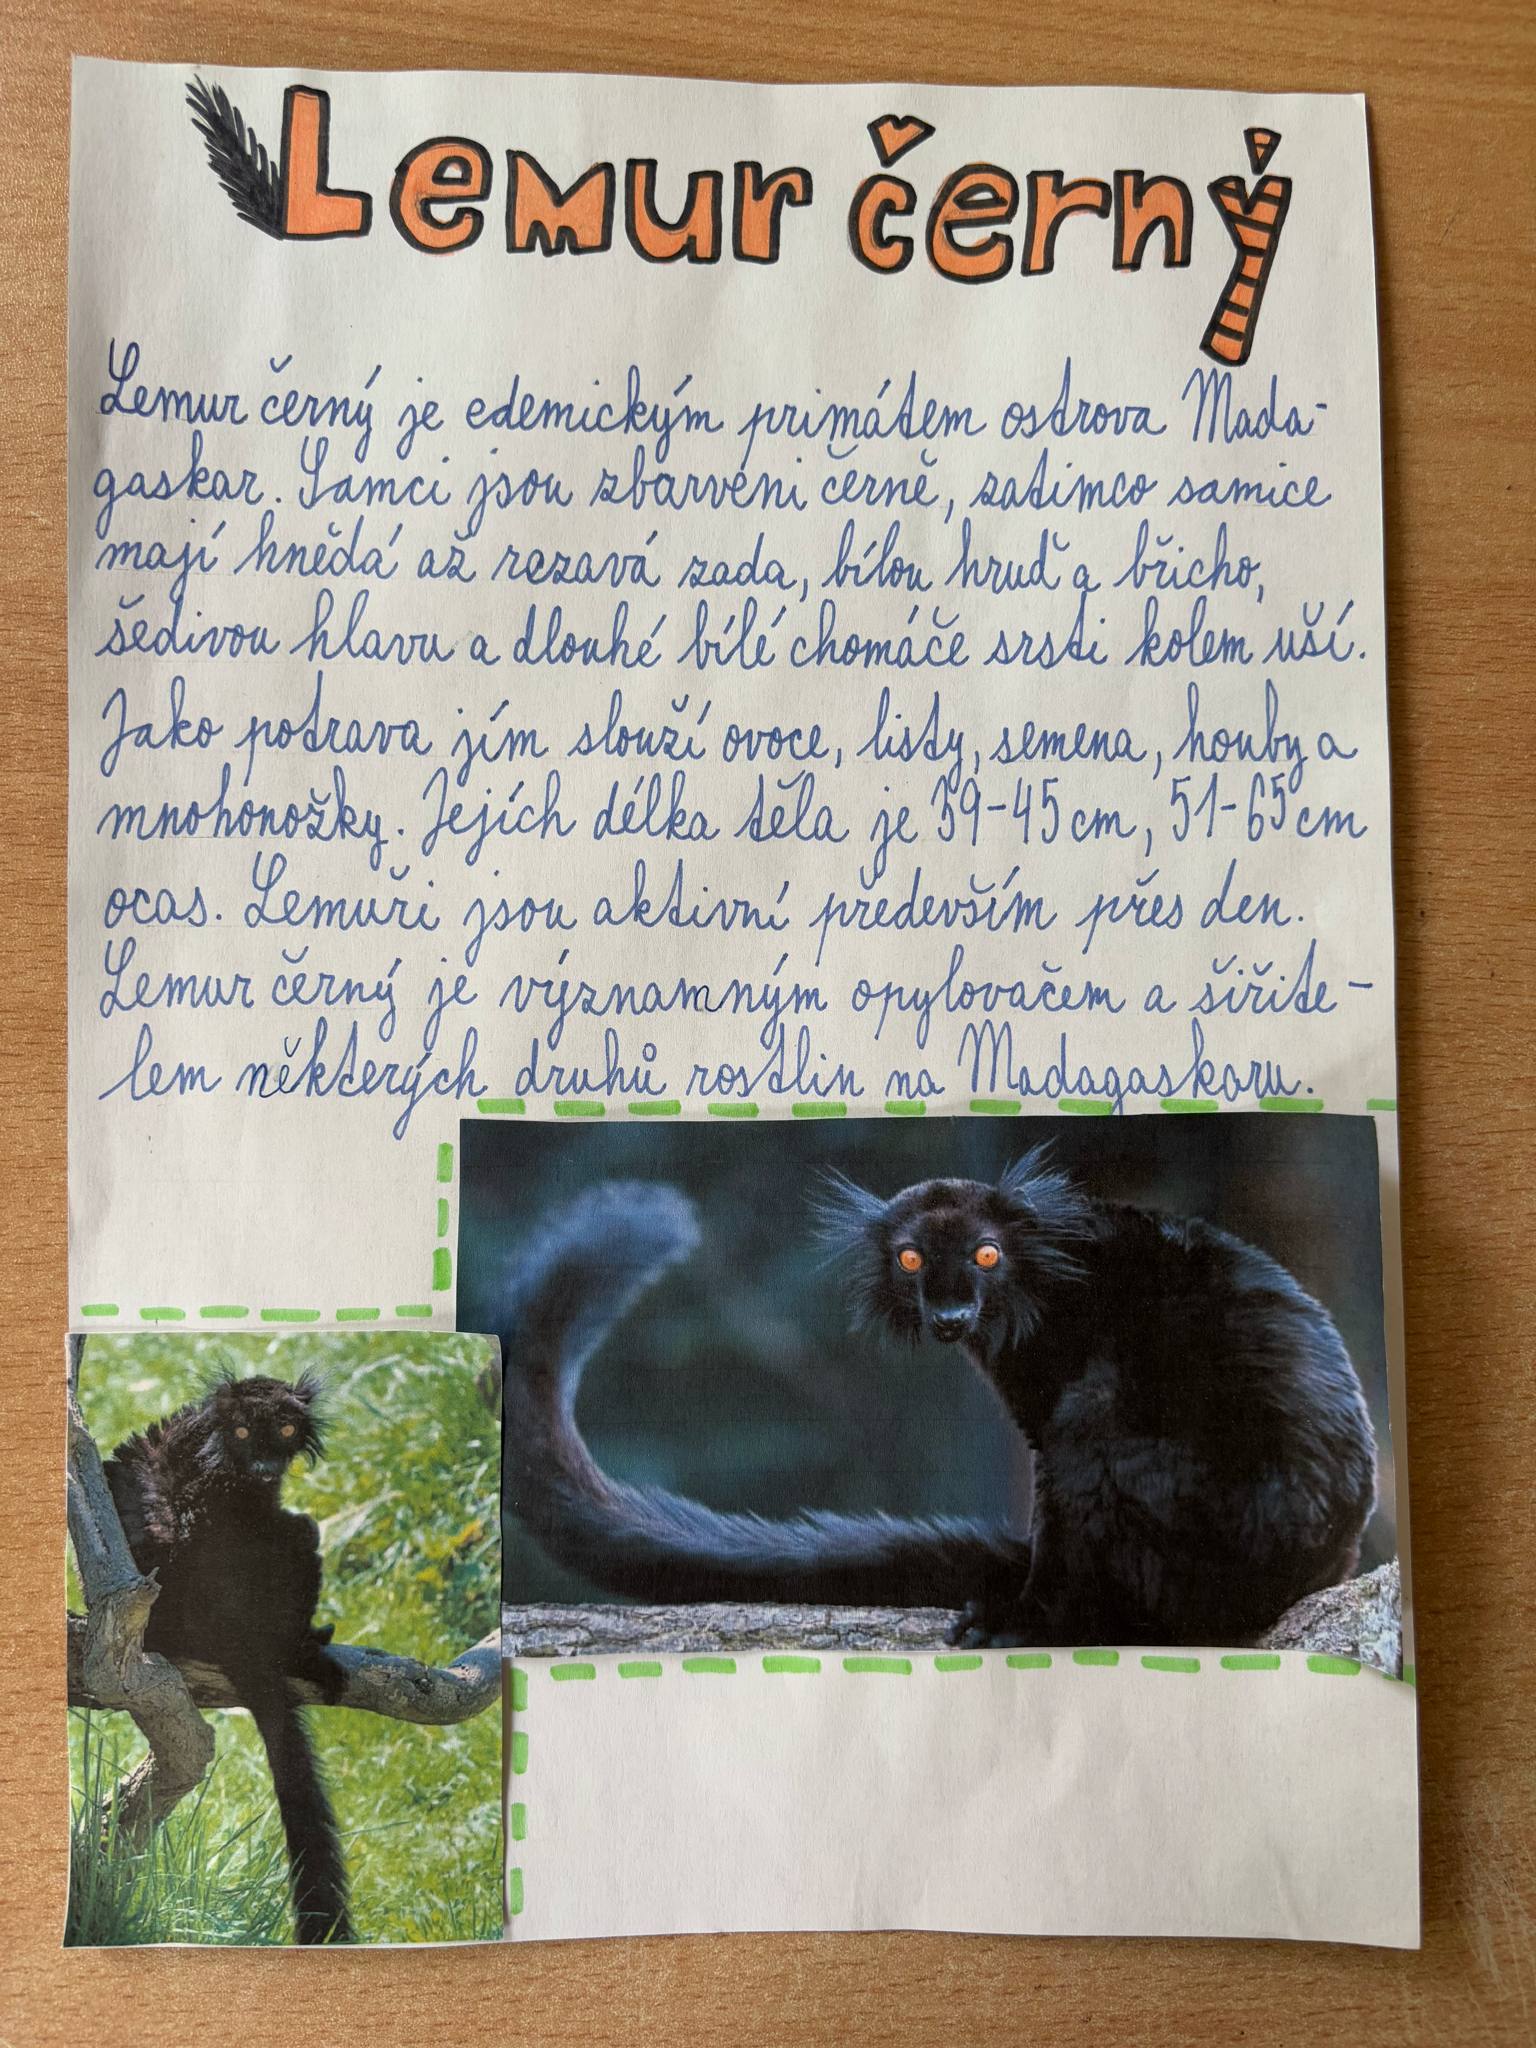 Lemur černý
Lemur černý je edemickým primátem ostrova Mada-
gaskar. Samci jsou zbarveni černě, zatimco samice
mají hnědá až rezavá zada, bílou hruď a břicho,
šedivou hlavu a dlouhé bílé chomáče srsti kolem uší.
Jako potrava jím slouží ovoce, listy, semena, houby a
mnohonožky. Jejích délka těla je 39-45 cm, 51-65 cm
ocas. Lemuři jsou aktivní především přes den.
Lemur černý je významným opylovačem a šiřite-
lem některých druhů rostlin na Madagaskaru.